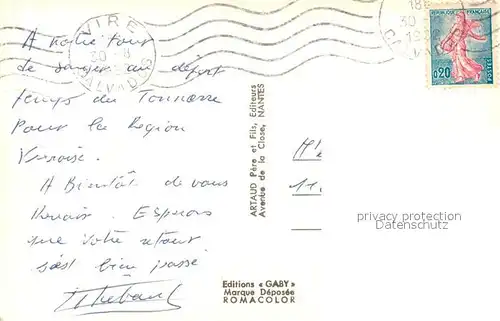 VIRE
30 - 8
CALVADOS
18H
30
CALVADOS
REPUBLIQUE FRANÇAISE
0,20
POSTES
A notre tour
de songer au départ
temps du Tonnerre
Pour la Region
Viroise.
A Bientôt de vous
Revoir. Esperons
que votre retour
s'est bien passé
ARTAUD Père et Fils, Editeurs
Avenue de la Close, NANTES
M
11.
privacy protection
Datenschutz
Editions « GABY »
Marque Déposée
ROMACOLOR